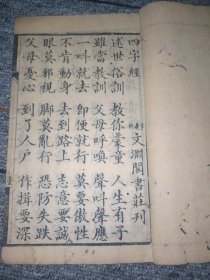 四字經
文淵閣書莊刊
述世俗訓 教你蒙童 人生有子
雖當教訓 父母呼喚 聲叫聲應
一叫就去 莫要傲性
不肯動身 去到路上 志意要誠
眼莫邪視 脚莫亂行 恐防失跌
父母憂心 到了人戶 作揖要深